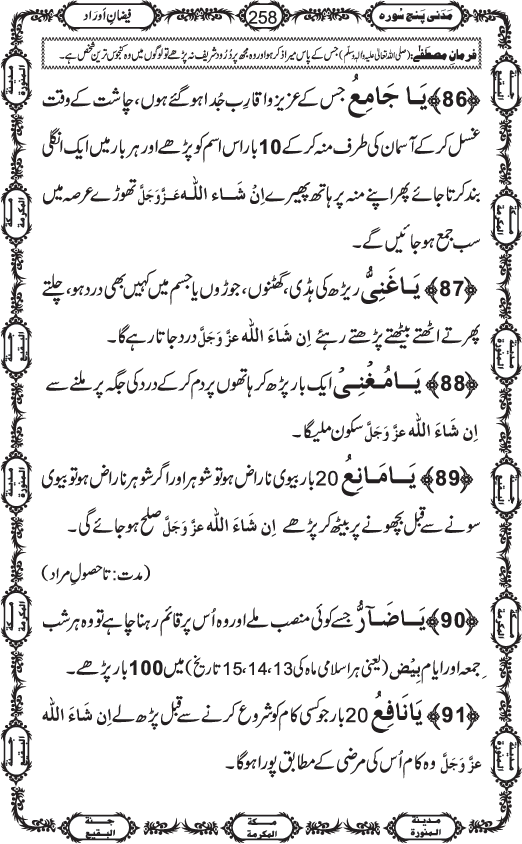 مَدَنی پنج سورہ 258 فیضانِ اَوراد
فرمانِ مصطَفٰے: (صلی اللہ تعالیٰ علیہ والہ وسلّم) جس کے پاس میرا ذکر ہو اور وہ مجھ پر دُرُود شریف نہ پڑھے تو لوگوں میں وہ کنجوس ترین شخص ہے۔
﴿86﴾ یَا جَامِعُ جس کے عزیز و اقارِب جُدا ہو گئے ہوں، چاشت کے وقت
غسل کر کے آسمان کی طرف منہ کر کے 10 بار اس اسم کو پڑھے اور ہر بار میں ایک انگلی
بند کرتا جائے پھر اپنے منہ پر ہاتھ پھیرے اِنْ شَاء اللہ عَزَّوَجَلَّ تھوڑے عرصہ میں
سب جمع ہو جائیں گے۔
﴿87﴾ یَاغَنِیُّ ریڑھ کی ہڈی، گھٹنوں، جوڑوں یا جسم میں کہیں بھی درد ہو، چلتے
پھرتے اٹھتے بیٹھتے پڑھتے رہئے اِن شَاءَ اللہ عزَّوَجَلَّ درد جاتا رہے گا۔
﴿88﴾ یَامُغْنِیْ ایک بار پڑھ کر ہاتھوں پر دم کر کے درد کی جگہ پر ملنے سے
اِن شَاءَ اللہ عزَّوَجَلَّ سکون ملیگا۔
﴿89﴾ یَامَانِعُ 20 بار بیوی ناراض ہو تو شوہر اور اگر شوہر ناراض ہو تو بیوی
سونے سے قبل بچھونے پر بیٹھ کر پڑھے اِن شَاءَ اللہ عزَّوَجَلَّ صلح ہو جائے گی۔
(مدت: تا حصولِ مراد)
﴿90﴾ یَاضَآرُّ جسے کوئی منصب ملے اور وہ اُس پر قائم رہنا چاہے تو وہ ہر شب
جمعہ اور ایامِ بِیْض (یعنی ہر اسلامی ماہ کی 15،14،13 تاریخ) میں 100 بار پڑھے۔
﴿91﴾ یَانَافِعُ 20 بار جو کسی کام کو شروع کرنے سے قبل پڑھ لے اِن شَاءَ اللہ
عزَّوَجَلَّ وہ کام اُس کی مرضی کے مطابق پورا ہوگا۔
جنّۃ البقیع مکۃ المکرمۃ مدینۃ المنورۃ